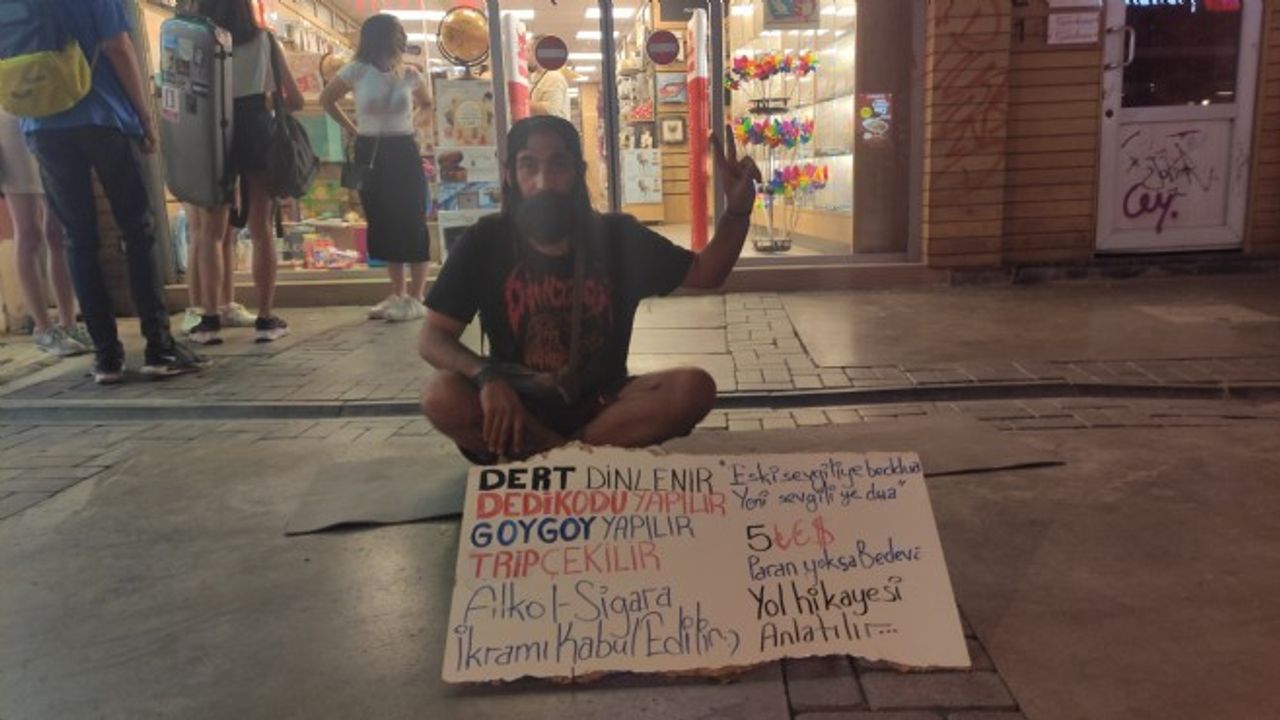 DERT DİNLENİR
DEDİKODU YAPILIR
GOYGOY YAPILIR
TRİP ÇEKİLİR
Alkol-Sigara
İkramı Kabul Edilir:)
"Eski sevgiliye beddua
Yeni sevgiliye dua"
5 ₺€$
Paran yoksa Bedava
Yol hikayesi
Anlatılır...
Cey.